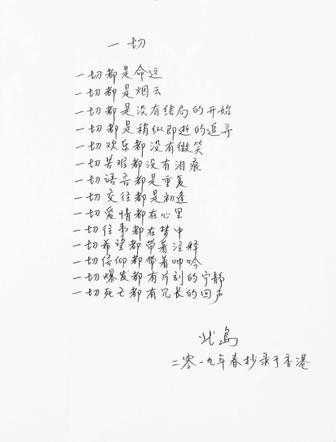 一切
一切都是命运
一切都是烟云
一切都是没有结局的开始
一切都是稍纵即逝的追寻
一切欢乐都没有微笑
一切苦难都没有泪痕
一切语言都是重复
一切交往都是初逢
一切爱情都在心里
一切往事都在梦中
一切希望都带着注释
一切信仰都带着呻吟
一切爆发都有片刻的宁静
一切死亡都有冗长的回声
北岛
二零一九年春抄录于香港